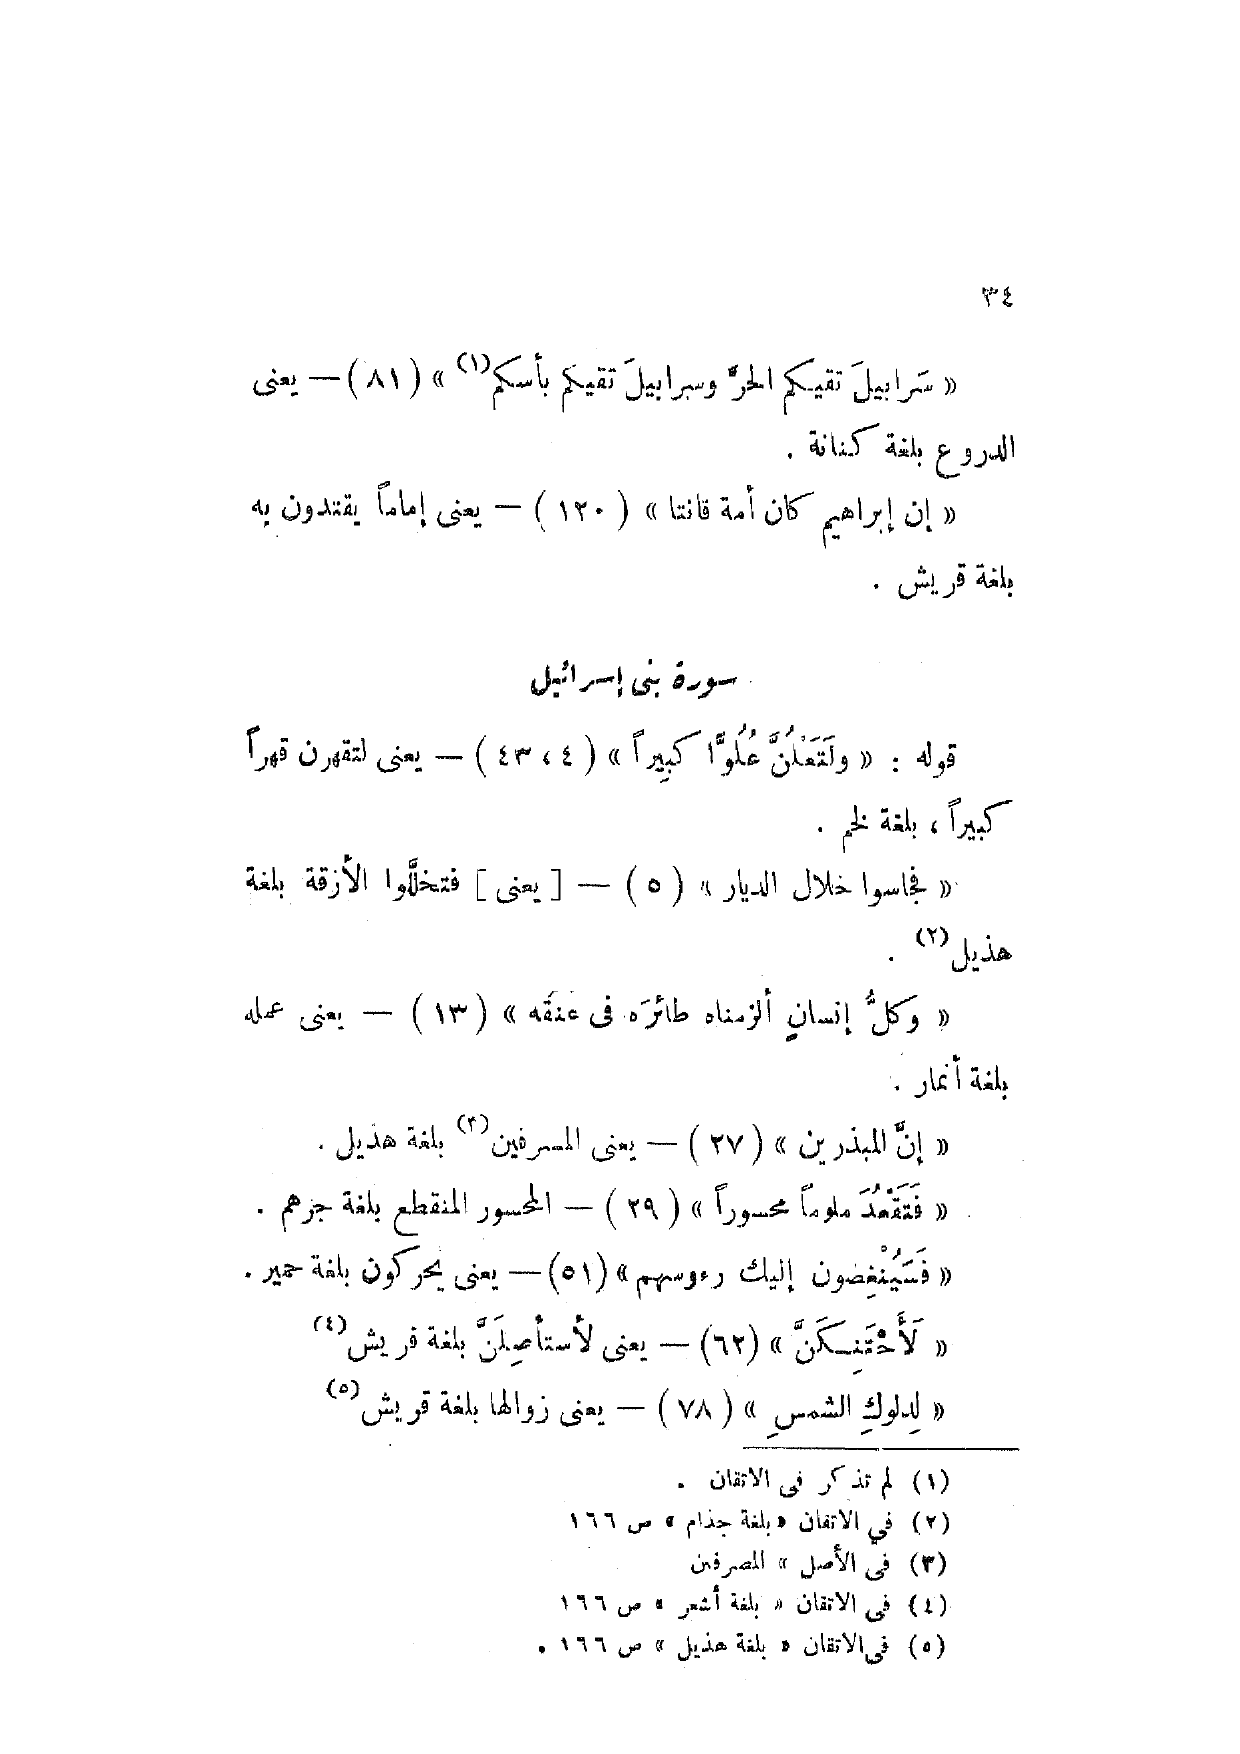 ٣٤
« سَرابيلَ تقيكم الحرَّ وسرابيلَ تقيكم بأسكم(١) » (٨١) — يعنى
الدروع بلغة كنانة .
« إن إبراهيم كان أمة قانتا » ( ١٢٠ ) — يعنى إماماً يقتدون به
بلغة قريش .
سورة بنى إسرائيل
قوله : « ولَتَعْلُنَّ عُلُوًّا كبِيراً » ( ٤ ، ٤٣ ) — يعنى لتقهرن قهراً
كبيراً ، بلغة لخم .
« فجاسوا خلال الديار » ( ٥ ) — [ يعنى ] فتخلَّلوا الأزقة بلغة
هذيل(٢) .
« وكلُّ إنسانٍ ألزمناه طائرَه فى عنقَه » ( ١٣ ) — يعنى عمله
بلغة أنمار .
« إنَّ المبذرين » ( ٢٧ ) — يعنى المسرفين(٣) بلغة هذيل .
« فَتَقْعُدَ ملوماً محسوراً » ( ٢٩ ) — المحسور المنقطع بلغة جرهم .
« فَسَيُنْغِضون إليك رءوسهم » (٥١) — يعنى يحركون بلغة حمير .
« لَأَحْتَنِكَنَّ » (٦٢) — يعنى لأستأصِلَنَّ بلغة قريش(٤)
« لِدلوكِ الشمسِ » ( ٧٨ ) — يعنى زوالها بلغة قريش(٥)
(١) لم تذكر فى الاتقان .
(٢) في الاتقان « بلغة جذام » ص ١٦٦
(٣) فى الأصل » المصرفين
(٤) فى الاتقان « بلغة أشعر » ص ١٦٦
(٥) فى الاتقان « بلغة هذيل » ص ١٦٦ .